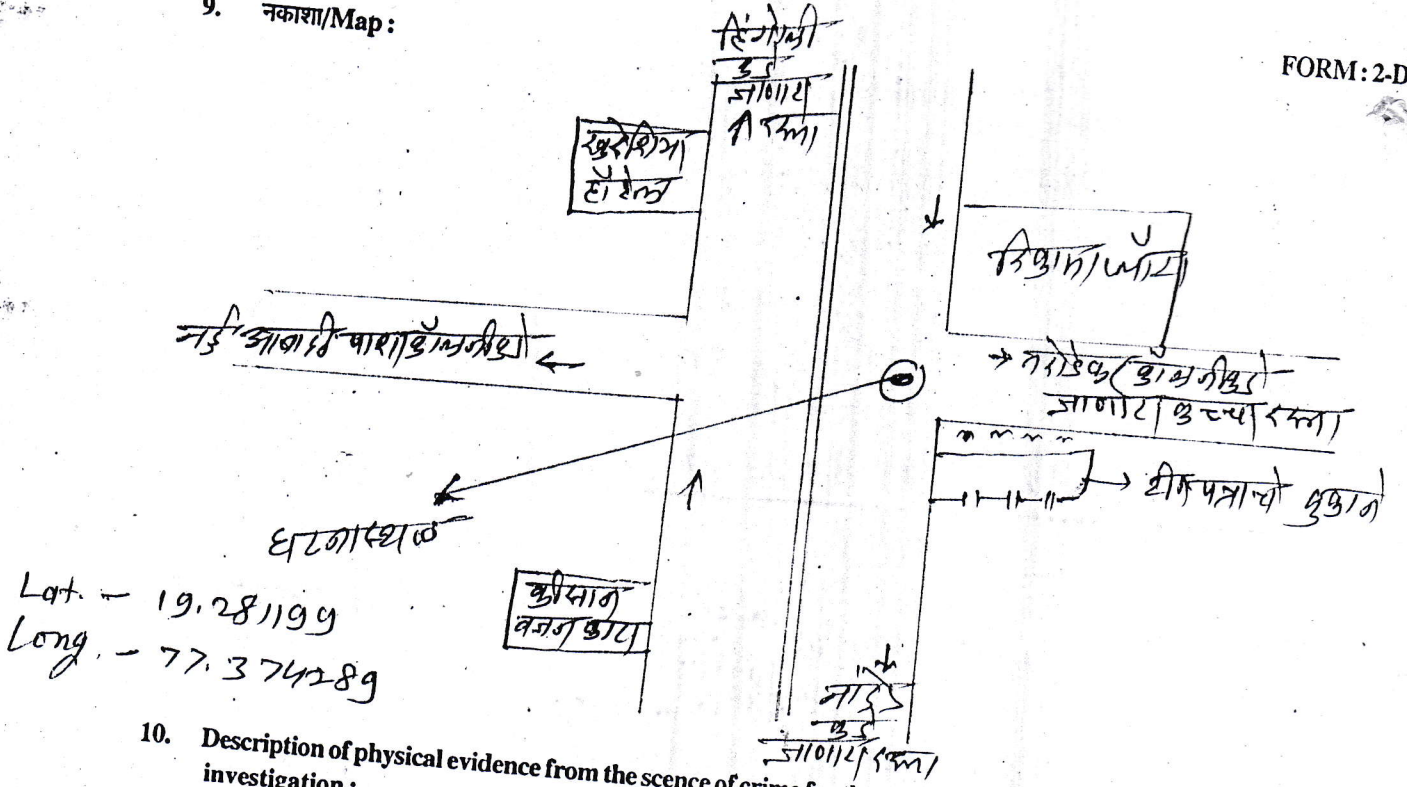 9. नकाशा/Map :
FORM : 2-D
हिंगोली
कडे
जाणारा
रस्ता
खुरेशिया
हॉटेल
रिकामा प्लॉट
नई आबादी पाशा कॉलनीकडे
कॉलनीकडे
जाणारा कच्चा रस्ता
टीनपत्राचे दुकाने
घटनास्थळ
Lat. - 19.281199
Long. - 77.374289
कीसान
वजन काटा
नांदेड
कडे
जाणारा रस्ता
10. Description of physical evidence from the scence of crime
investigation :